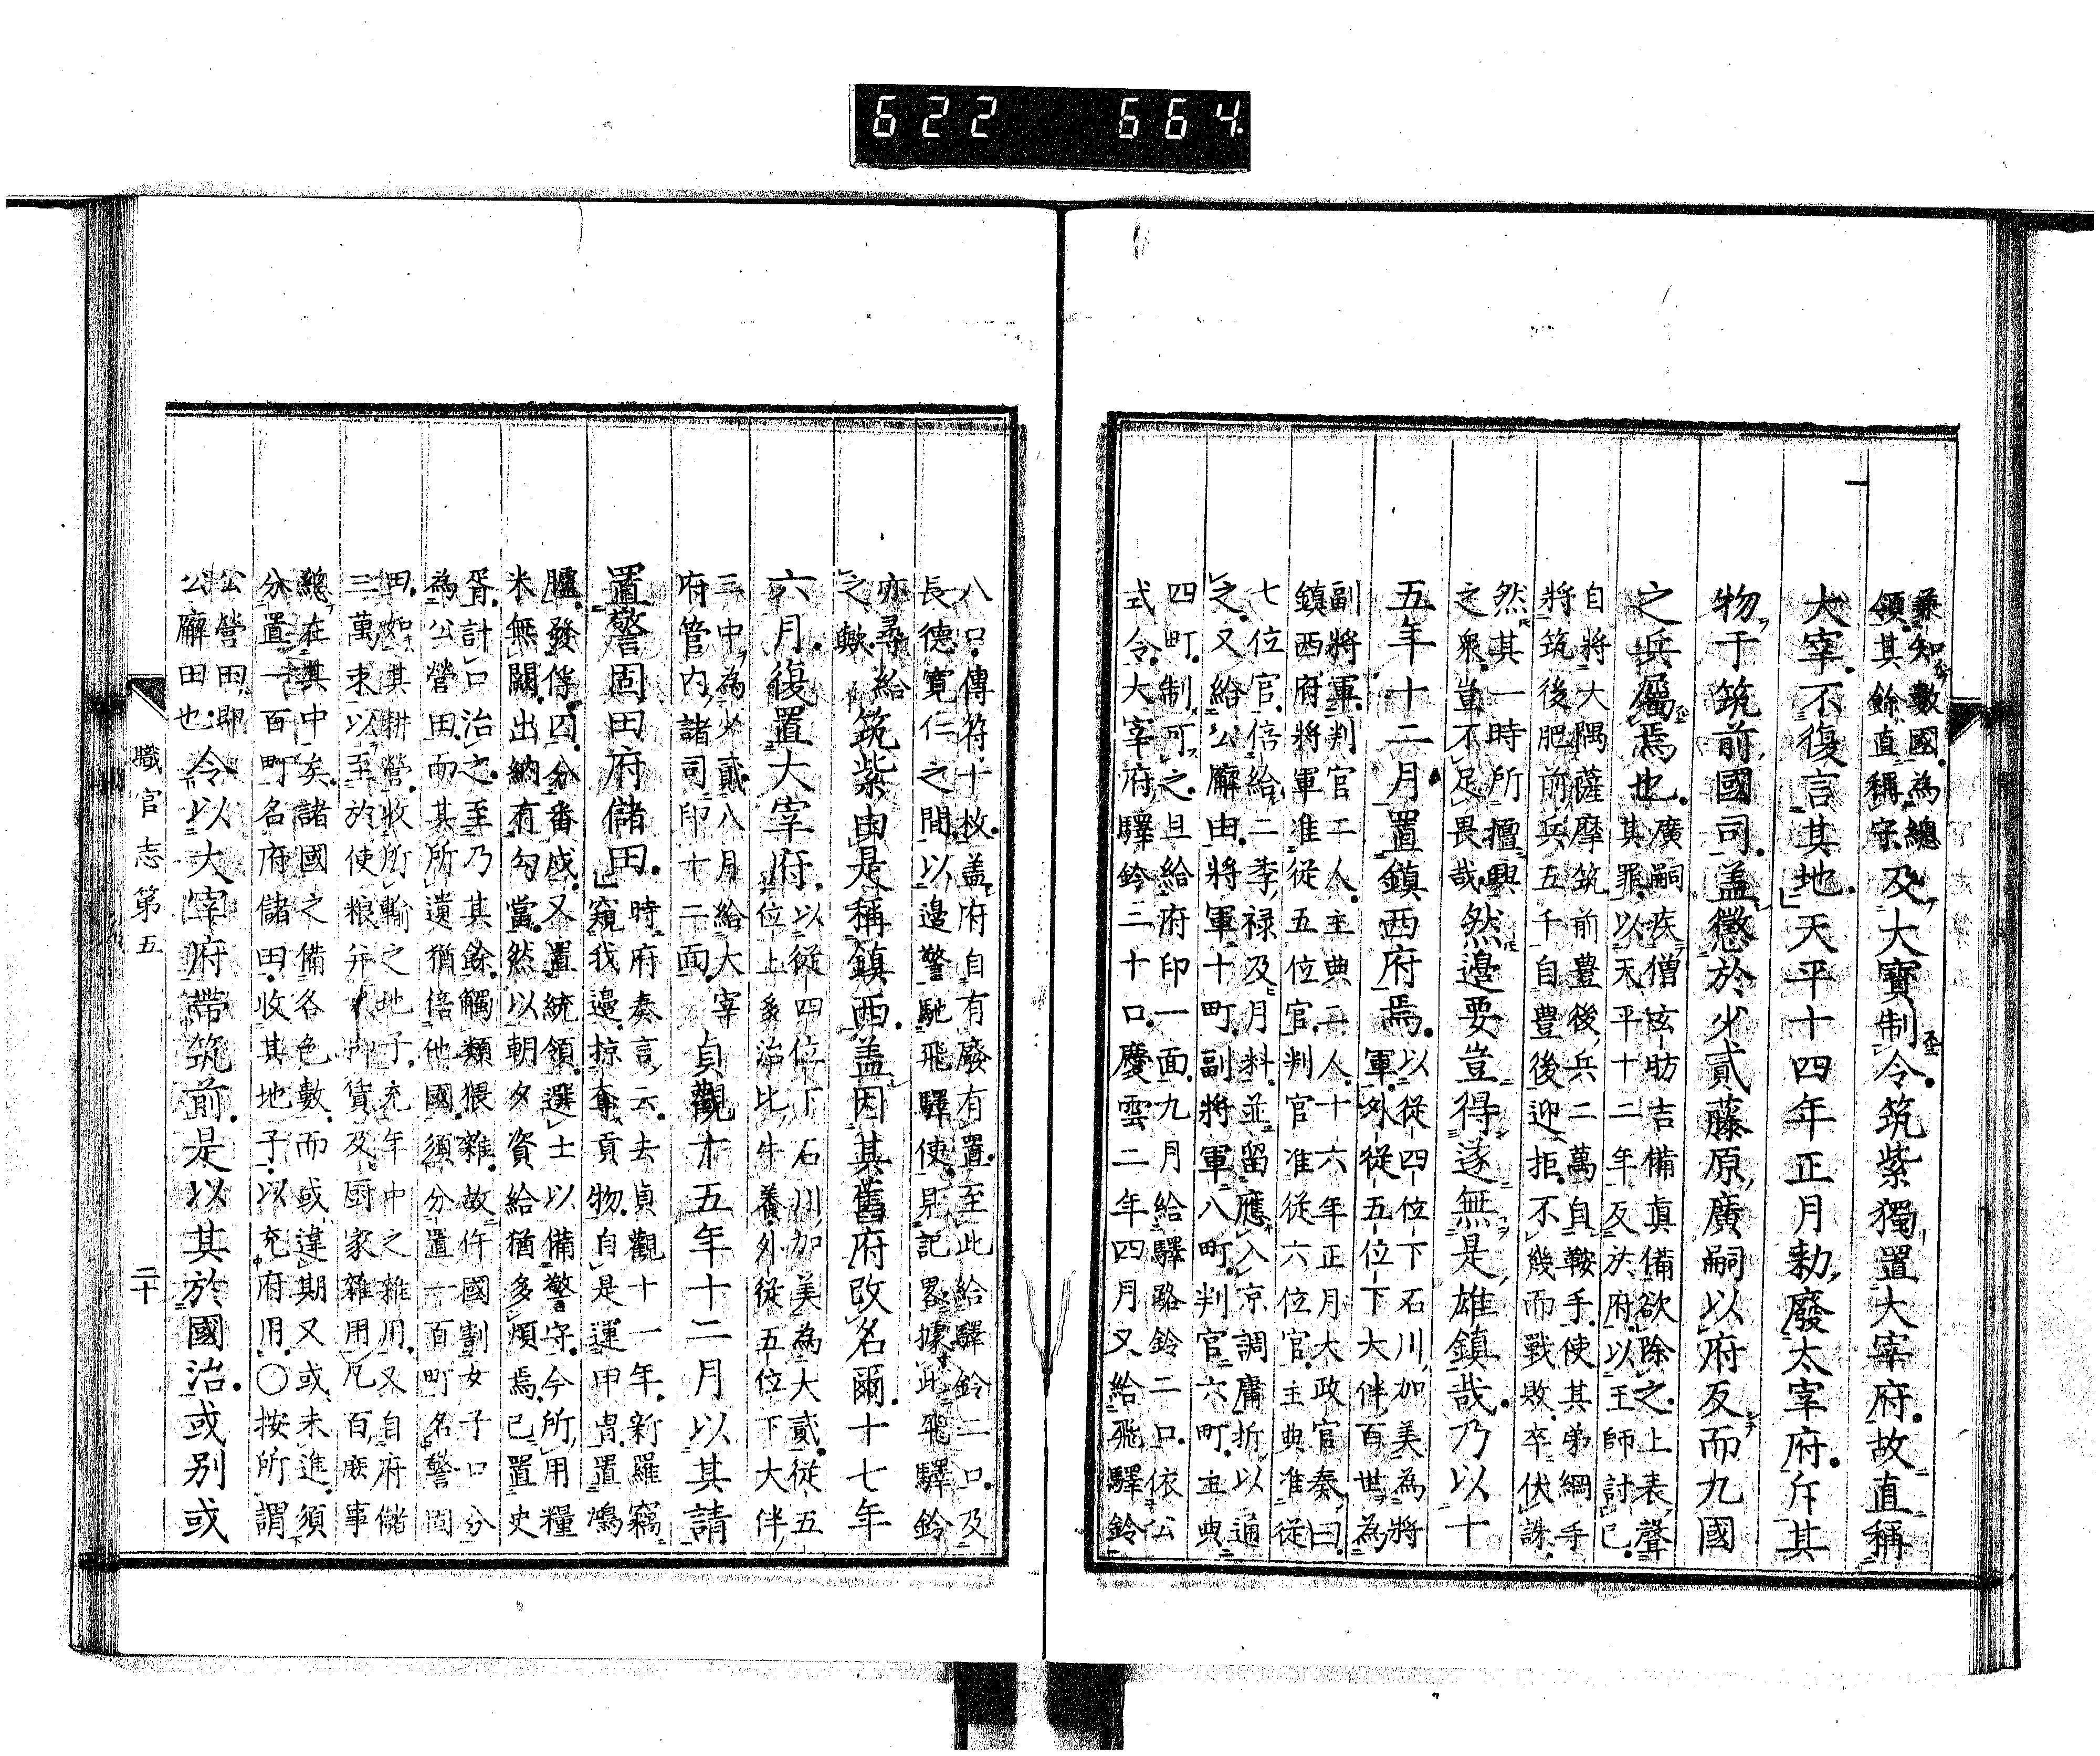 622 664
兼知數國為總
領其餘直稱守
及大寶制令筑紫獨置大宰府故直稱
大宰不復言其地天平十四年正月勅廢太宰府斥其
物于筑前國司盖懲於少貳藤原廣嗣以府反而九國
之兵屬焉也
廣嗣疾僧玄昉吉備眞備欲除之上表聲
其罪以天平十二年反於府以王師討已
自將大隅薩摩筑前豊後兵二萬自鞍手使其弟綱手
將筑後肥前兵五千自豊後迎拒不幾而戰敗卒伏誅
然其一時所擅興
之衆豈不足畏哉
然邊要豈得遂無是雄鎮哉乃以十
五年十二月置鎮西府焉
以從四位下石川加美為將
軍外從五位下大伴百世為
副將軍判官二人主典二人十六年正月大政官奏曰
鎮西府將軍准從五位官判官准從六位官主典准從
七位官倍給二季禄及月料並留應入京調庸折以通
之又給公廨田將軍十町副將軍八町判官六町主典
四町制可之且給府印一面九月給驛路鈴二口依公
式令大宰府驛鈴二十口慶雲二年四月又給飛驛鈴
八口傳符十枚盖府自有廢有置至此給驛鈴二口及
長德寛仁之間以邊警馳飛驛使見記畧據此飛驛鈴
亦尋給
之歟
筑紫由是稱鎮西盖因其舊府改名爾十七年
六月復置大宰府
以從四位下石川加美為大貳從五
位上多治比牛養外從五位下大伴
三中為少貳八月給大宰
府管內諸司印十二面
貞觀十五年十二月以其請
置警固田府儲田
時府奏言云去貞觀十一年新羅竊
窺我邊掠奪貢物自是運甲冑置鴻
臚發俘囚分番戍又置統領選士以備警守今所用糧
米無闕出納有勾當然以朝夕資給猶多煩焉已置史
胥計口治之至乃其餘觸類猥雜故件國割女子口分
為公營田而其所遺猶倍他國須分置一百町名警固
田如其耕營收所輸之地子充年中之雜用又自府儲
三萬束以至於使粮幷 賃及厨家雜用凡百廐事
總在其中矣諸國之備各色數而或違期又或未進須
分置一百町名府儲田收其地子以充府用〇按所謂
公營田即
公廨田也
令以大宰府帶筑前是以其於國治或別或
職官志第五
二十